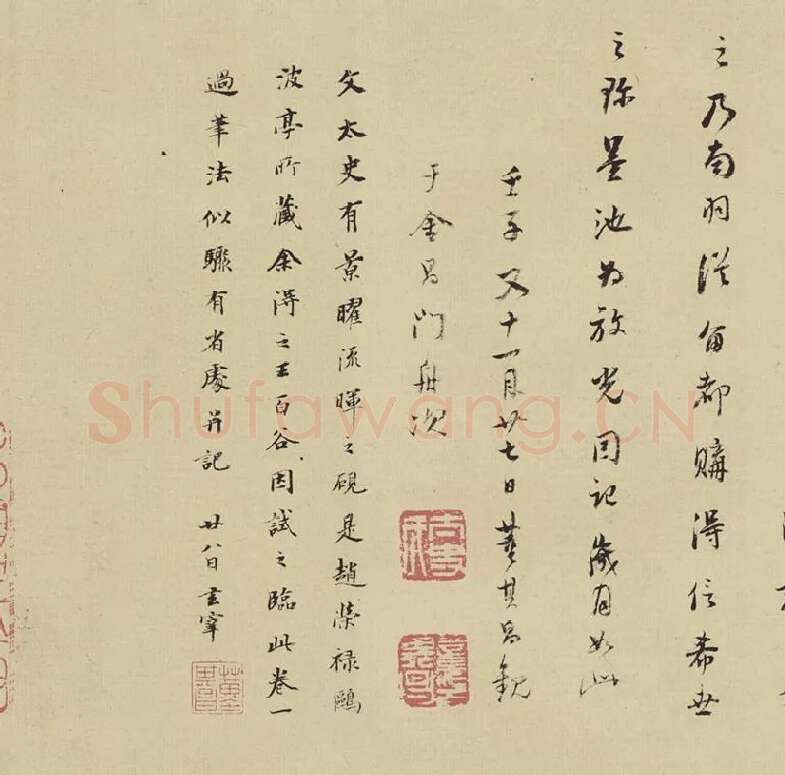 之乃南羽從留都購得信希世
之珍墨池為放光因記歲月如此
壬子又十一月廿七日董其昌觀
于金昌門舟次
文太史有景曜流暉之硯是趙榮祿鷗
波亭所藏余得之王百谷因試之臨此卷一
過筆法似驟有省處并記 廿八日玄宰
Shufawang.CN